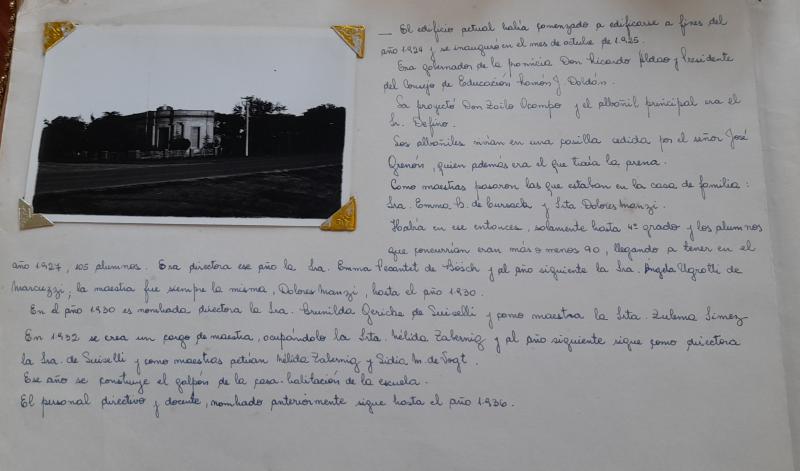 — El edificio actual había comenzado a edificarse a fines del
año 1924 y se inauguró en el mes de octubre de 1925.
Era gobernador de la provincia Don Ricardo Aldao y Presidente
del Consejo de Educación Ramón J. Doldán.
La proyectó Don Zoilo Ocampo y el albañil principal era el
Sr. Defino.
Los albañiles vivían en una casilla cedida por el señor José
Grenón, quien además era el que traía la arena.
Como maestras pasaron las que estaban en la casa de familia:
Sra. Emma B. de Cursack y Srta Dolores Manzi.
Había en ese entonces, solamente hasta 4º grado y los alumnos
que concurrían eran más o menos 90, llegando a tener en el
año 1927, 105 alumnos. Era directora ese año la Sra. Emma de Bosch y al año siguiente la Sra. Ángela Ugrotti de
Marcuzzi; la maestra fue siempre la misma, Dolores Manzi, hasta el año 1930.
En el año 1930 es nombrada directora la Sra. Brunilda Geriche de Suiselli y como maestra la Srta. Zulema Simez
En 1932 se crea un cargo de maestra, ocupándolo la Srta. Nélida Zabernig y al año siguiente sigue como directora
la Sra. de Suiselli y como maestras actúan Nélida Zabernig y Lidia M. de Vogt.
Ese año se construye el galpón de la casa-habitación de la escuela.
El personal directivo y docente, nombrado anteriormente sigue hasta el año 1936.